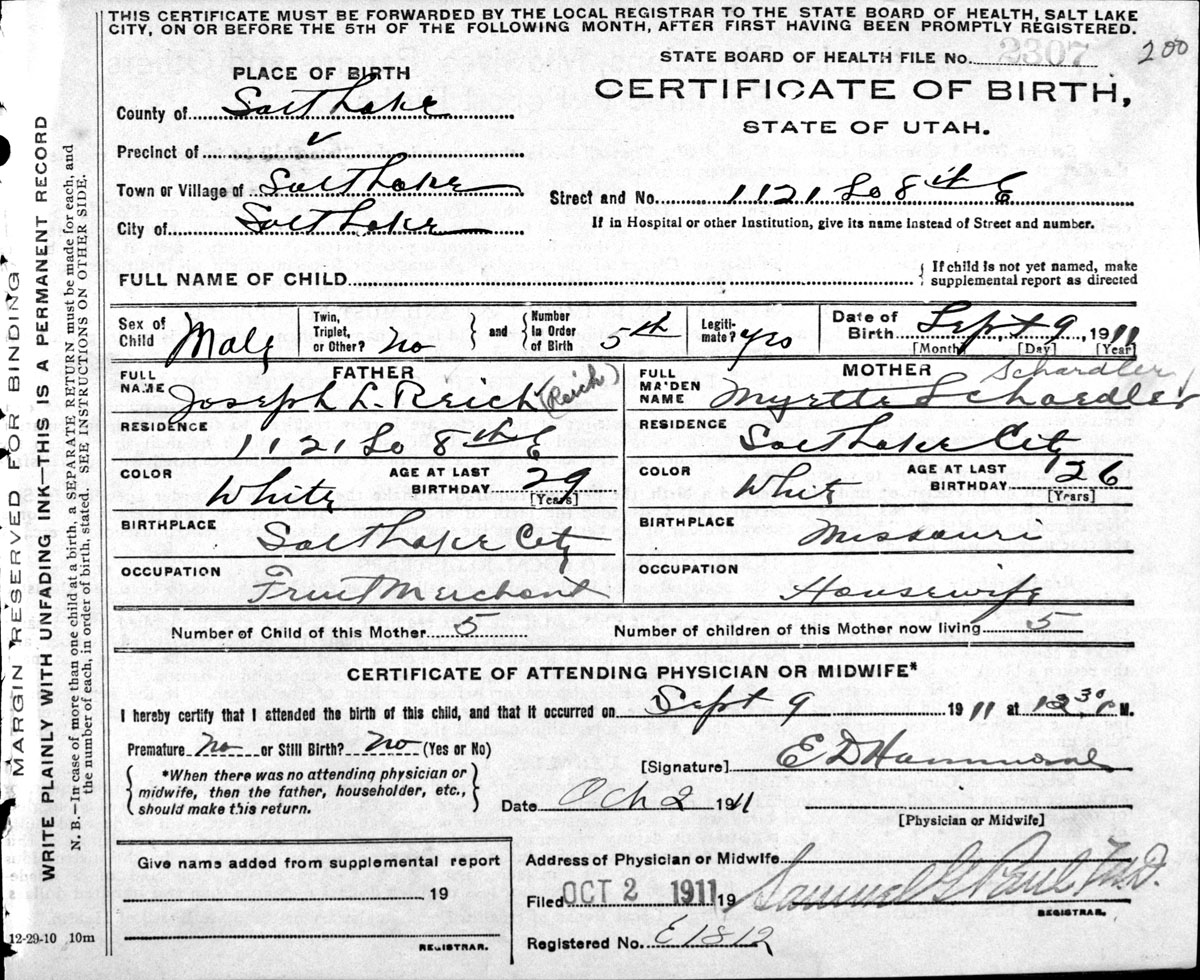 THIS CERTIFICATE MUST BE FORWARDED BY THE LOCAL REGISTRAR TO THE STATE BOARD OF HEALTH, SALT LAKE
CITY, ON OR BEFORE THE 5TH OF THE FOLLOWING MONTH, AFTER FIRST HAVING BEEN PROMPTLY REGISTERED.
200
STATE BOARD OF HEALTH FILE No. 2307
PLACE OF BIRTH
CERTIFICATE OF BIRTH,
STATE OF UTAH.
County of Salt Lake
Precinct of ✓
Town or Village of Salt Lake
Street and No. 1121 So 8th E
City of Salt Lake
If in Hospital or other Institution, give its name instead of Street and number.
FULL NAME OF CHILD
If child is not yet named, make
supplemental report as directed
Sex of Child Male
Twin, Triplet, or Other? No
and Number in Order of Birth 5th
Legitimate? yes
Date of Birth Sept 9, 1911
[Month] [Day] [Year]
FATHER
FULL NAME Joseph L. Reich (Reich)
MOTHER
FULL MAIDEN NAME Myrtle Schaedler
RESIDENCE 1121 So 8th E
RESIDENCE Salt Lake City
COLOR White
AGE AT LAST BIRTHDAY 29 [Years]
COLOR White
AGE AT LAST BIRTHDAY 26 [Years]
BIRTHPLACE Salt Lake City
BIRTHPLACE Missouri
OCCUPATION Fruit Merchant
OCCUPATION Housewife
Number of Child of this Mother 5
Number of children of this Mother now living 5
CERTIFICATE OF ATTENDING PHYSICIAN OR MIDWIFE*
I hereby certify that I attended the birth of this child, and that it occurred on Sept 9 1911 at 12 30 P M.
Premature No or Still Birth? No (Yes or No)
*When there was no attending physician or
midwife, then the father, householder, etc.,
should make this return.
[Signature] E D Hammond
Date Oct 2 1911
[Physician or Midwife]
Give name added from supplemental report
19
REGISTRAR.
Address of Physician or Midwife
Filed OCT 2 1911 19 Samuel G Paul M.D.
REGISTRAR.
Registered No. E1812
12-29-10 10m
MARGIN RESERVED FOR BINDING
WRITE PLAINLY WITH UNFADING INK—THIS IS A PERMANENT RECORD
N. B.—In case of more than one child at a birth, a SEPARATE RETURN must be made for each, and
the number of each, in order of birth, stated. SEE INSTRUCTIONS ON OTHER SIDE.